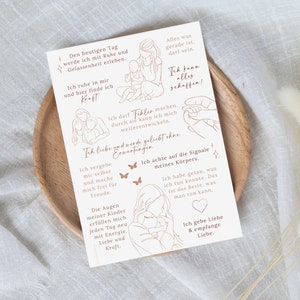 Den heutigen Tag
werde ich mit Ruhe und
Gelassenheit erleben.
Alles was
gerade ist,
darf sein.
Ich ruhe in mir
und hier finde ich
Kraft.
Ich kann alles
schaffen!
Ich darf Fehler machen,
durch sie kann ich mich
weiterentwickeln.
Ich liebe und werde geliebt ohne
Erwartungen.
Ich vergebe
mir selbst
und mache
mich frei für
Freude.
Ich achte auf die Signale
meines Körpers.
Ich habe getan, was
ich tun konnte. Das
ist das Beste, was
man tun kann.
Die Augen
meiner Kinder
erfüllen mich
jeden Tag neu
mit Energie,
Liebe und
Kraft.
Ich gebe Liebe
& empfange
Liebe.